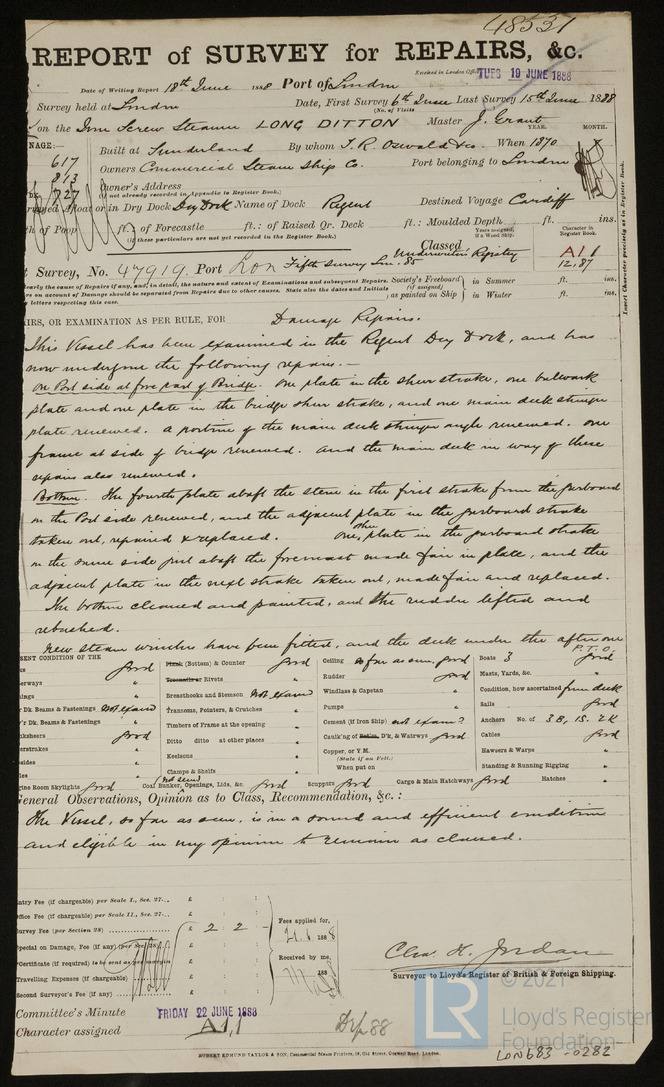 48531
REPORT of SURVEY for REPAIRS, &c.
Received in London Office TUES 19 JUNE 1888
Date of Writing Report 18th June 1888 Port of London
Survey held at London Date, First Survey 6th June Last Survey 15th June 1888
(No. of Visits
on the Iron Screw Steamer LONG DITTON Master J. Grant
YEAR. MONTH.
NAGE:—
Built at Sunderland By whom T. R. Oswald & Co. When 1870
617
Owners Commercial Steam Ship Co. Port belonging to London
813
Owner's Address
(if not already recorded in Appendix to Register Book.)
727
Afloat or in Dry Dock Dry Dock Name of Dock Regent Destined Voyage Cardiff
th of Poop ft.: of Forecastle ft.: of Raised Qr. Deck ft.: Moulded Depth ft. ins.
(if these particulars are not yet recorded in the Register Book.)
Years assigned, if a Wood Ship.
Character in Register Book.
Classed
Underwriters Registry A1 1
t Survey, No. 47919. Port Lon Fifth survey Lon. 85 12,87
Insert Character precisely as in Register Book.
clearly the cause of Repairs if any, and, in detail, the nature and extent of Examinations and subsequent Repairs.
rs on account of Damage should be separated from Repairs due to other causes. State also the dates and Initials
letters respecting this case.
Society's Freeboard (if assigned) as painted on Ship in Summer ft. ins.
in Winter ft. ins.
AIRS, OR EXAMINATION AS PER RULE, FOR Damage Repairs.
This Vessel has been examined in the Regent Dry Dock, and has
now undergone the following repairs.—
On Port side at fore part of Bridge. One plate in the sheer strake, one bulwark
plate and one plate in the bridge sheer strake, and one main deck stringer
plate renewed. A portion of the main deck stringer angle renewed. One
frame at side of bridge renewed. And the main deck in way of these
repairs also renewed.
Bottom. The fourth plate abaft the stem in the first strake from the garboard
on the Port side renewed, and the adjacent plate in the garboard strake
taken out, repaired & replaced. One other plate in the garboard strake
on the same side just abaft the foremast made fair in place, and the
adjacent plate in the next strake taken out, made fair and replaced.
The bottom cleaned and painted, and the rudder lifted and
rebushed.
New steam winches have been fitted, and the deck under the after one
P.T.O.
SENT CONDITION OF THE
good
erways "
ings "
r Dk. Beams & Fastenings Not exam'd
r'r Dk. Beams & Fastenings "
ksheers good
erstrakes "
sides "
les "
gine Room Skylights good
Plank (Bottom) & Counter good
Treenails or Rivets "
Breasthooks and Stemson Not exam'd
Transoms, Pointers, & Crutches "
Timbers of Frame at the opening "
Ditto ditto at other places "
Keelsons "
Clamps & Shelfs "
Coal Bunker, Openings, Lids, &c. not seen good
Ceiling so far as seen, good
Rudder good
Windlass & Capstan "
Pumps "
Cement (if Iron Ship) not exam'd
Caulk'ng of Bottom, D'k, & Watrwys good
Copper, or Y.M. (State if on Felt.)
When put on
Scuppers good
Cargo & Main Hatchways good
Boats 3 good
Masts, Yards, &c. "
Condition, how ascertained from deck
Sails good
Anchors No. of 3B, 1S. 2K
Cables good
Hawsers & Warps "
Standing & Running Rigging "
Hatches "
General Observations, Opinion as to Class, Recommendation, &c.:
The Vessel, so far as seen, is in a sound and efficient condition
and eligible in my opinion to remain as classed.
Entry Fee (if chargeable) per Scale I., Sec. 27... £ : :
Office Fee (if chargeable) per Scale II., Sec. 27... £ : :
Survey Fee (per Section 28) £ 2 : 2 :
Special on Damage, Fee (if any) (per Sec. 28) £ : :
Certificate (if required) to be sent as per margin
Travelling Expenses (if chargeable) £ : :
Second Surveyor's Fee (if any) £ : :
Fees applied for,
21.6 1888
Received by me,
188
Chas. H. Jordan
Surveyor to Lloyd's Register of British & Foreign Shipping.
Committee's Minute FRIDAY 22 JUNE 1888
Character assigned A1,1
ROBERT EDMUND TAYLOR & SON, Commercial Steam Printers, 19, Old Street, Goswell Road, London.
LR © 2021
Lloyd's Register
Foundation
LON683-0282